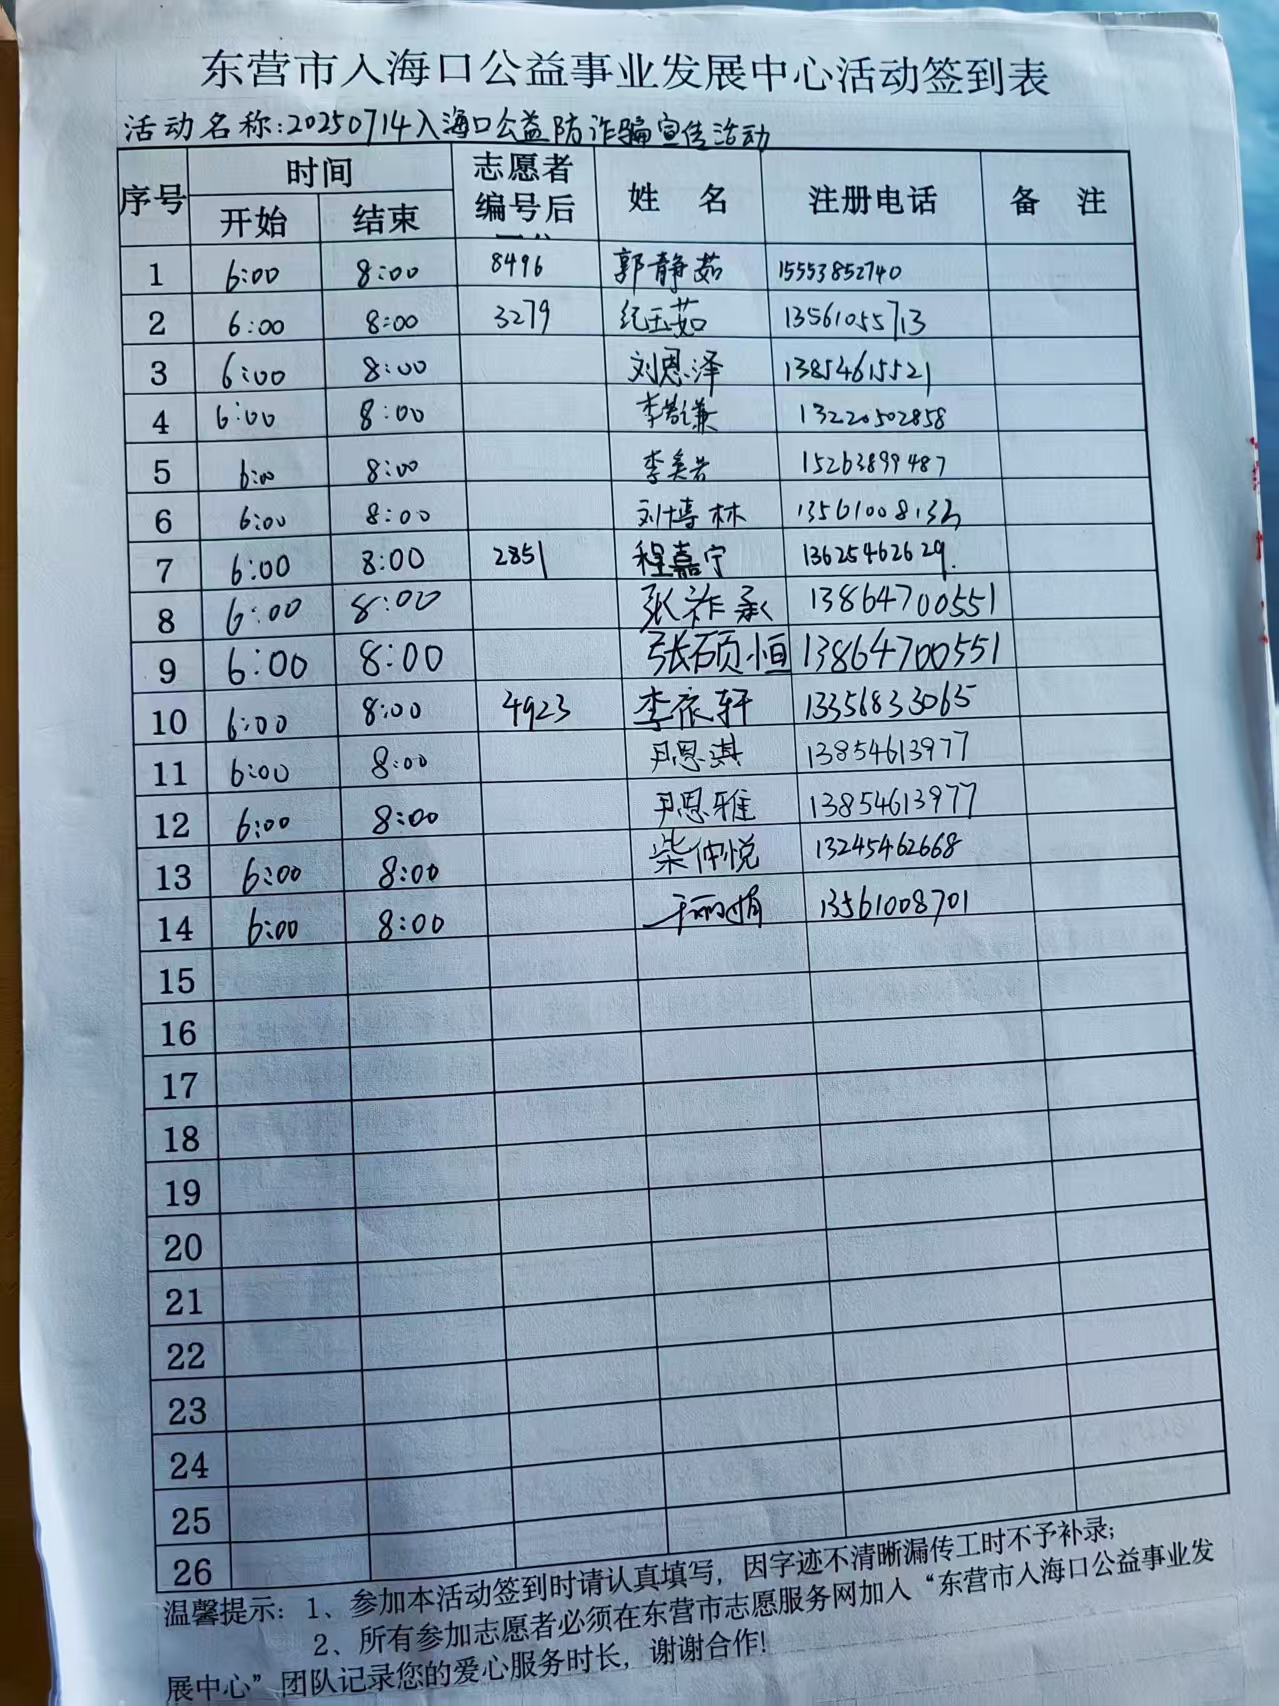 东营市入海口公益事业发展中心活动签到表
活动名称:20250714入海口公益防诈骗宣传活动
序号 时间 开始 结束 志愿者编号后 姓 名 注册电话 备 注
1 6:00 8:00 8496 郭静茹 15553852740
2 6:00 8:00 3279 纪玉茹 13561055713
3 6:00 8:00 刘恩泽 13854615521
4 6:00 8:00 李 谦 13220502858
5 6:00 8:00 李 15263899487
6 6:00 8:00 刘博林
7 6:00 8:00 2851 程嘉宁 13625462629.
8 6:00 8:00 张祚承 13864700551
9 6:00 8:00 张硕恒 13864700551
10 6:00 8:00 4923 李依轩 13356833065
11 6:00 8:00 尹恩淇 13854613977
12 6:00 8:00 尹恩雅 13854613977
13 6:00 8:00 柴仲悦 13245462668
14 6:00 8:00 13561008701
15
16
17
18
19
20
21
22
23
24
25
26
温馨提示: 1、参加本活动签到时请认真填写, 因字迹不清晰漏传工时不予补录;
2、所有参加志愿者必须在东营市志愿服务网加入“东营市入海口公益事业发
展中心”团队记录您的爱心服务时长, 谢谢合作!